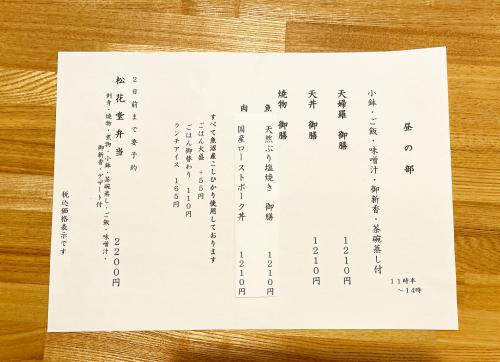 昼の部
11時半
～14時
小鉢・ご飯・味噌汁・御新香・茶碗蒸し付
天婦羅 御膳 1210円
天丼 御膳 1210円
焼物 御膳
魚 天然ぶり塩焼き 御膳 1210円
肉 国産ローストポーク丼 1210円
すべて魚沼産こしひかり使用しております
ごはん大盛 +55円
ごはん御替わり 110円
ランチアイス 165円
2日前まで要予約
松花堂弁当 2200円
刺身・焼物・煮物・小鉢・茶碗蒸し・ご飯・味噌汁・
御新香・デザート付
税込価格表示です